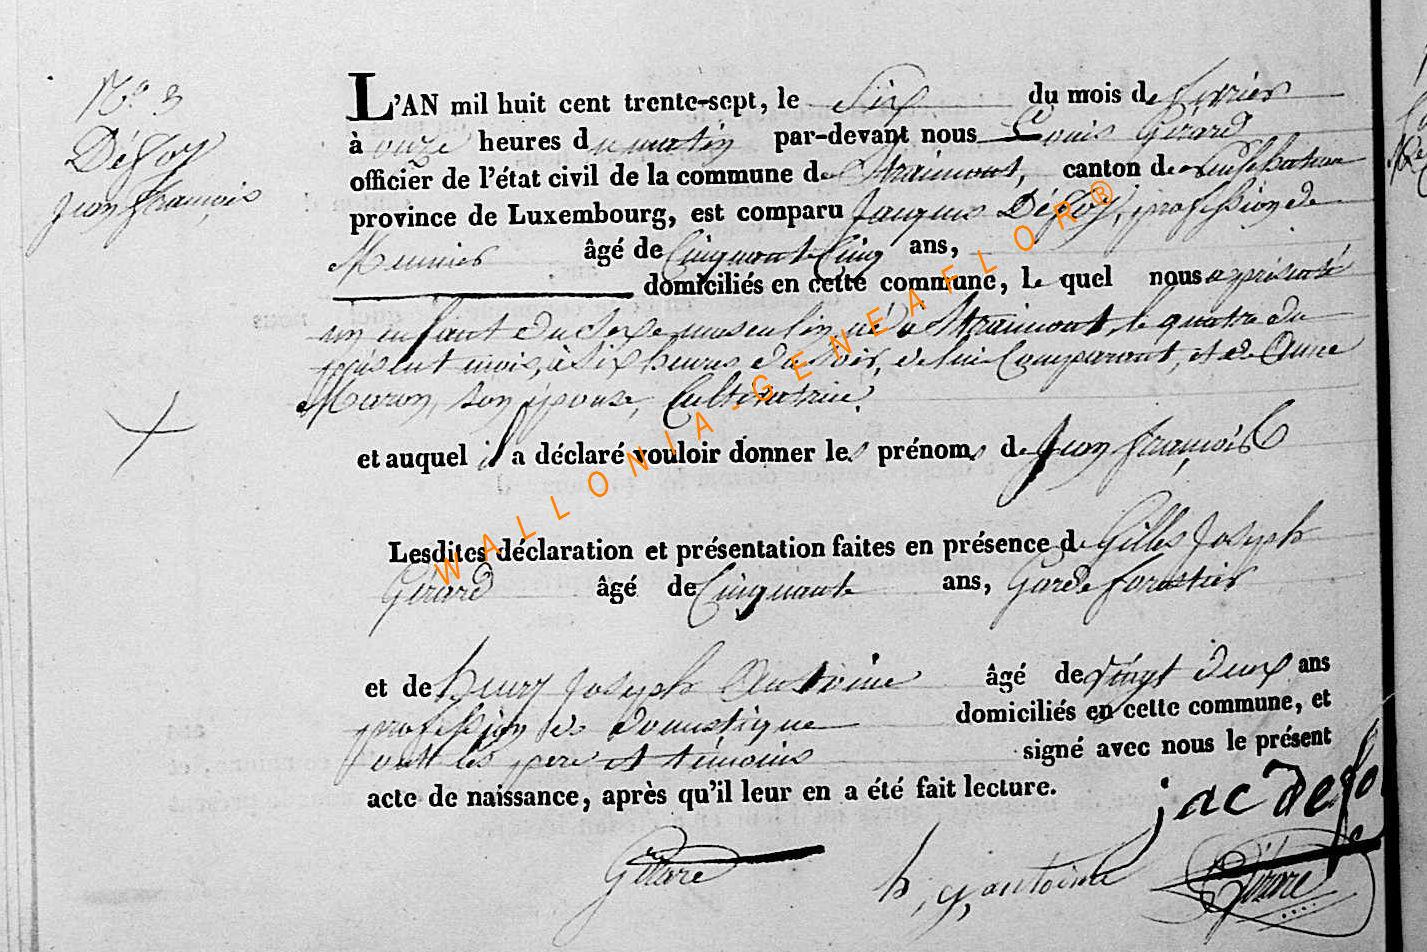 N° 3
Défoy
Jean françois
L'AN mil huit cent trente-sept, le Six du mois de fevrier
à onze heures du matin par-devant nous Louis Girard
officier de l'état civil de la commune de Straimont, canton de Neufchateau
province de Luxembourg, est comparu Jacques Défoy, profession de
Meunier âgé de Cinquante Cinq ans,
domiciliés en cette commune, Le quel nous a présenté
un enfant du sexe masculin, né à Straimont, le quatre du
présent mois, à Six heures du soir, de lui Comparant, et de Anne
Maron, son épouse, Cultivatrice.
et auquel il a déclaré vouloir donner les prénoms de Jean françois
Lesdites déclaration et présentation faites en présence de Gilles Joseph
Girard âgé de Cinquante ans, Garde forestier
et de henry Joseph Antoine âgé de vingt deux ans
profession de domestique domiciliés en cette commune, et
ont les pere et témoins signé avec nous le présent
acte de naissance, après qu'il leur en a été fait lecture.
jac defo
Girard
h, j, antoine
Girard
WALLONIA.GENEAFLOR®